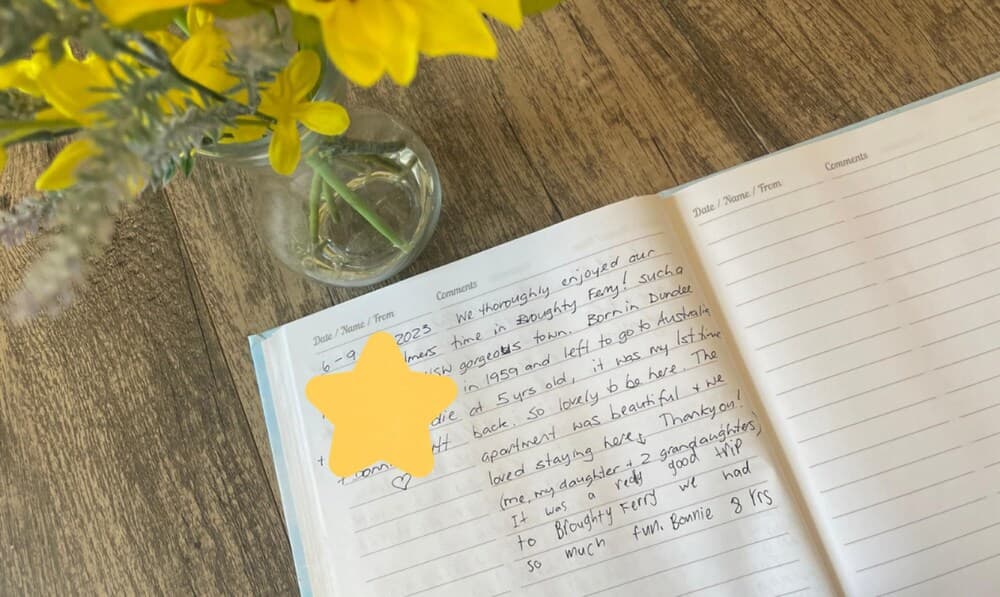 Date / Name / From Comments
6 - 9 2023 We thoroughly enjoyed our
lmers time in Broughty Ferry! such a
NSW gorgeous town. Born in Dundee
in 1959 and left to go to Australia
die at 5 yrs old, it was my 1st time
back. So lovely to be here. The
+ apartment was beautiful + we
loved staying here. Thankyou!
(me, my daughter + 2 grandaughters)
It was a really good trip
to Broughty Ferry we had
so much fun. Bonnie 8 Yrs
Date / Name / From Comments